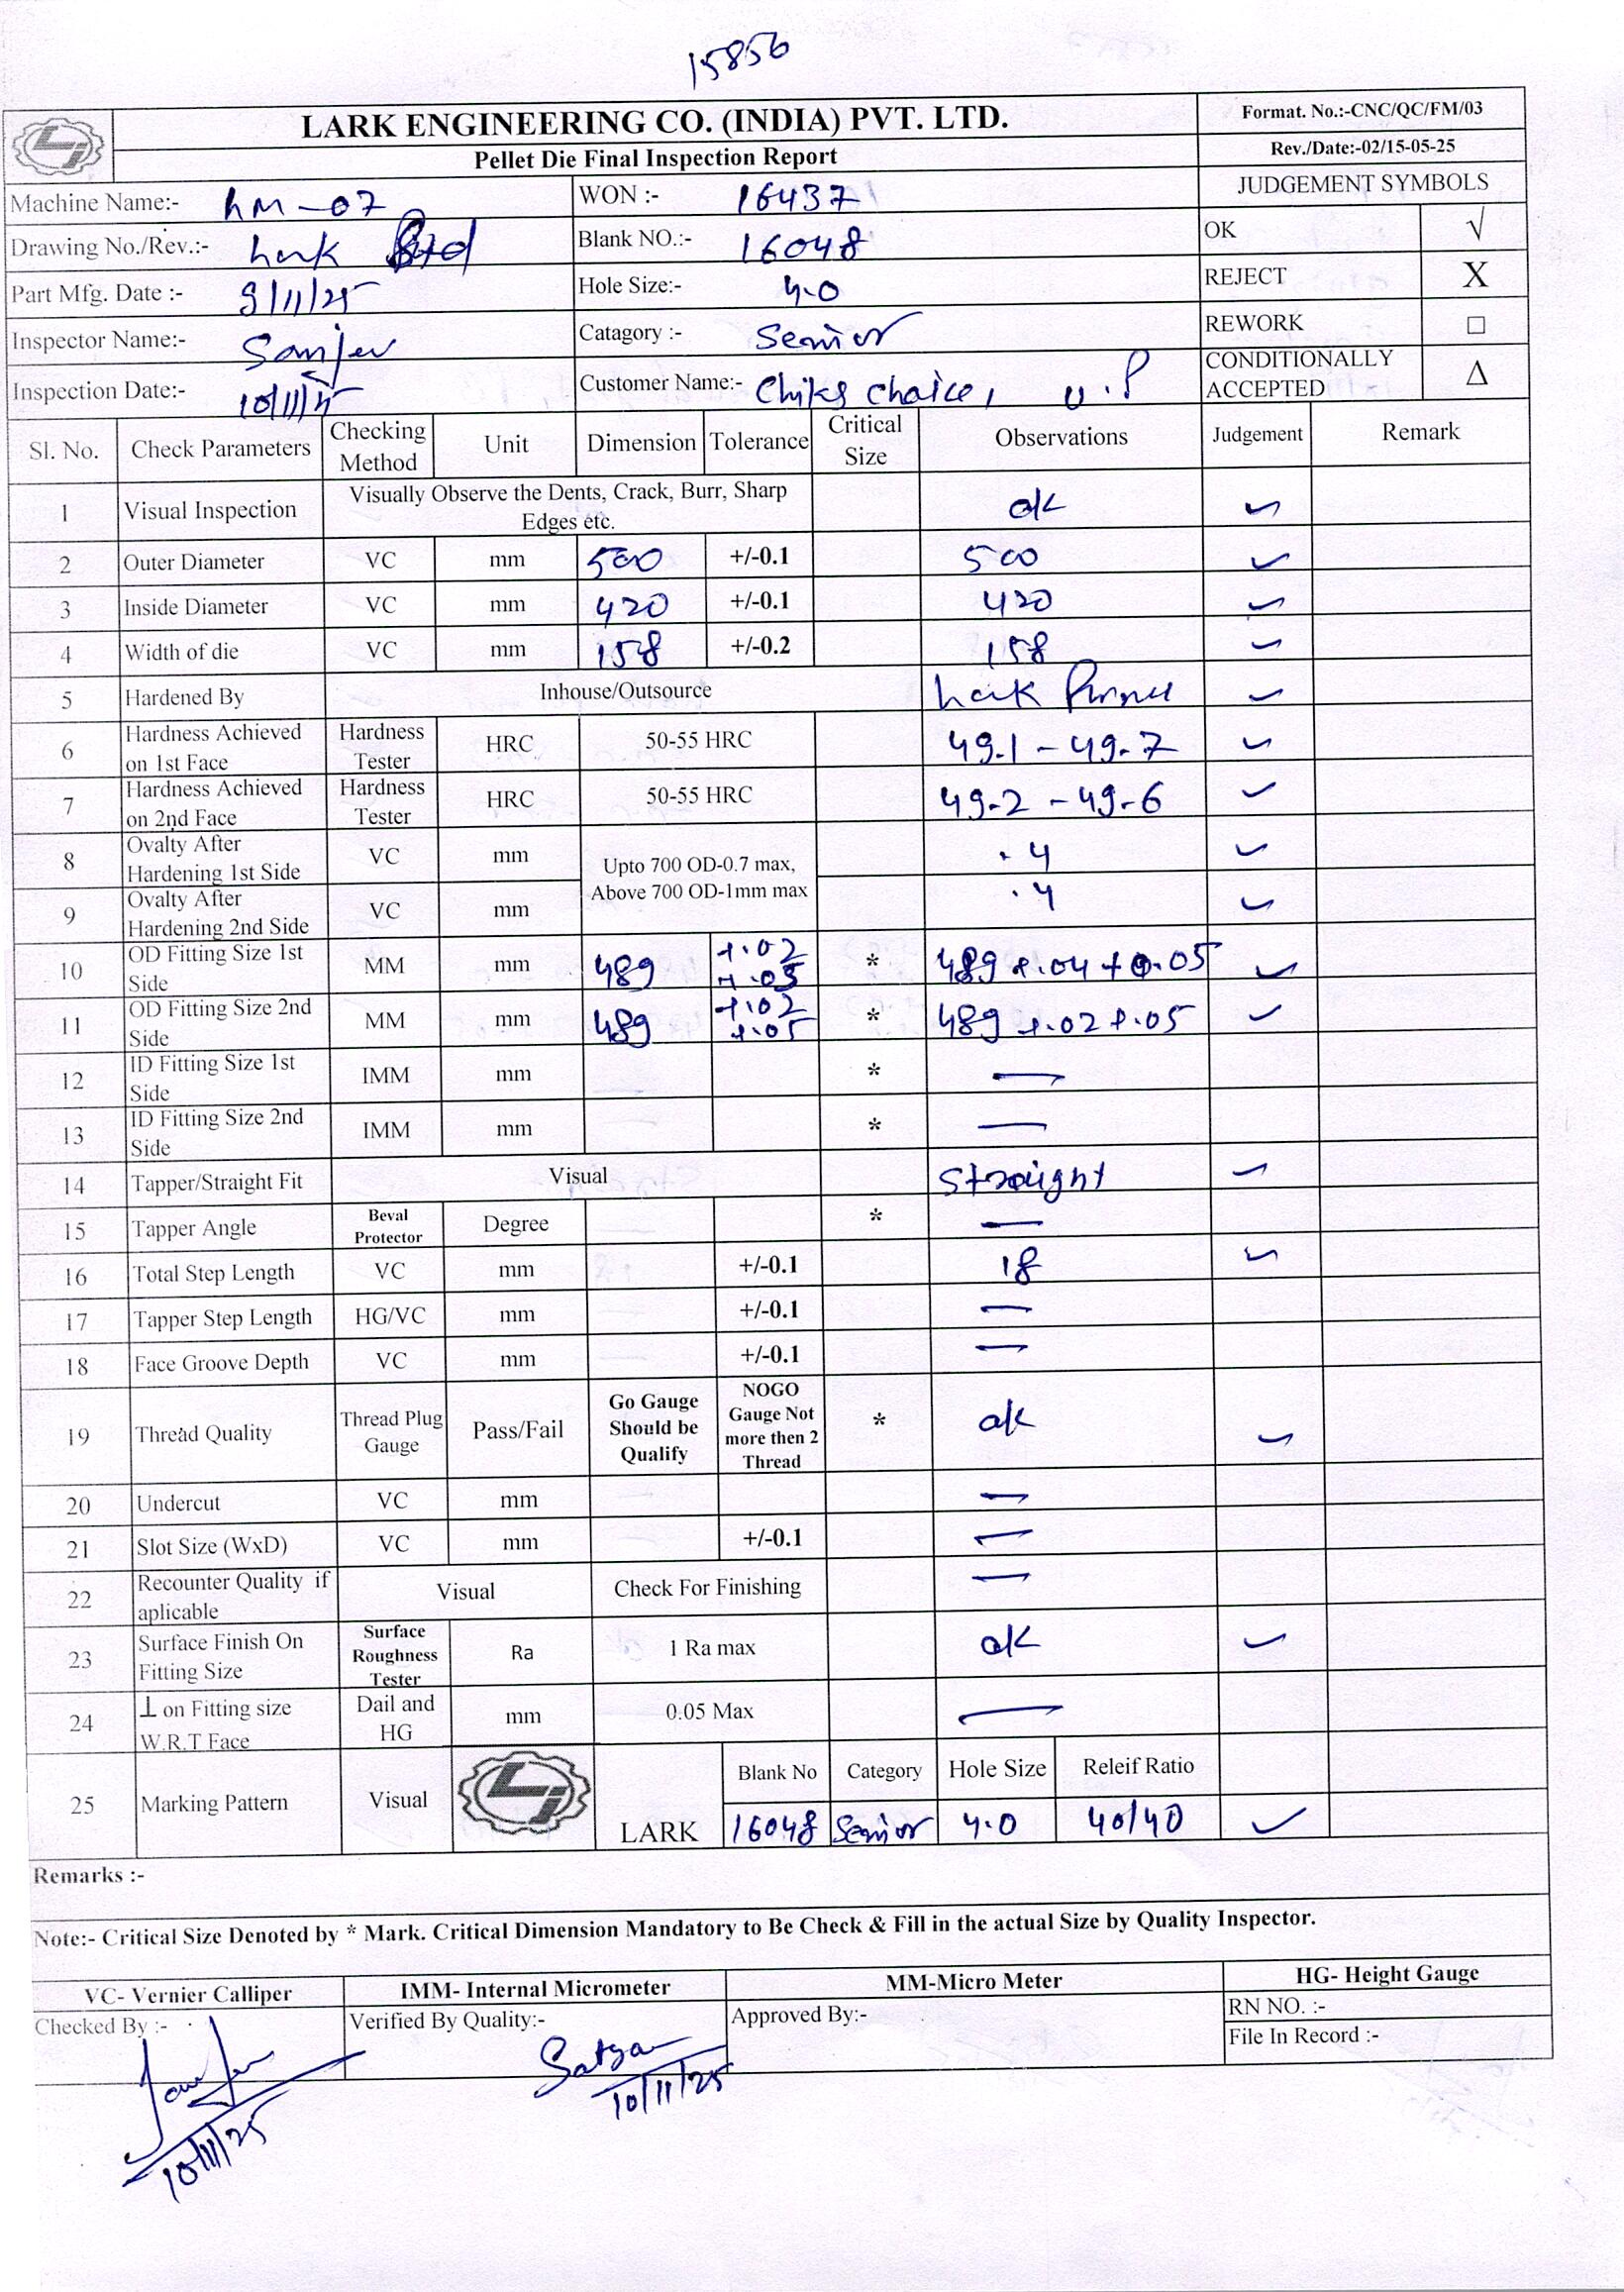 15856
LARK ENGINEERING CO. (INDIA) PVT. LTD.
Format. No.:-CNC/QC/FM/03
Pellet Die Final Inspection Report
Rev./Date:-02/15-05-25
Machine Name:- LM-07 WON :- 16437 JUDGEMENT SYMBOLS
Drawing No./Rev.:- Lark Std Blank NO.:- 16048 OK √
Part Mfg. Date :- 9/11/25 Hole Size:- 4.0 REJECT X
Inspector Name:- Sanjev Catagory :- Senior REWORK □
Inspection Date:- 10/11/25 Customer Name:- Chiks Choice, U.P CONDITIONALLY ACCEPTED Δ
Sl. No. Check Parameters Checking Method Unit Dimension Tolerance Critical Size Observations Judgement Remark
1 Visual Inspection Visually Observe the Dents, Crack, Burr, Sharp Edges etc. ok ✓
2 Outer Diameter VC mm 500 +/-0.1 500 ✓
3 Inside Diameter VC mm 420 +/-0.1 420 ✓
4 Width of die VC mm 158 +/-0.2 158 ✓
5 Hardened By Inhouse/Outsource Lark ✓
6 Hardness Achieved on 1st Face Hardness Tester HRC 50-55 HRC 49.1 - 49.7 ✓
7 Hardness Achieved on 2nd Face Hardness Tester HRC 50-55 HRC 49.2 - 49.6 ✓
8 Ovalty After Hardening 1st Side VC mm Upto 700 OD-0.7 max, Above 700 OD-1mm max .4 ✓
9 Ovalty After Hardening 2nd Side VC mm .4 ✓
10 OD Fitting Size 1st Side MM mm 489 +.02 +.05 * 489 +.04 +0.05 ✓
11 OD Fitting Size 2nd Side MM mm 489 +.02 +.05 * 489 +.02 +.05 ✓
12 ID Fitting Size 1st Side IMM mm * —
13 ID Fitting Size 2nd Side IMM mm * —
14 Tapper/Straight Fit Visual Straight ✓
15 Tapper Angle Beval Protector Degree * —
16 Total Step Length VC mm +/-0.1 18 ✓
17 Tapper Step Length HG/VC mm +/-0.1 —
18 Face Groove Depth VC mm +/-0.1 —
19 Thread Quality Thread Plug Gauge Pass/Fail Go Gauge Should be Qualify NOGO Gauge Not more then 2 Thread * ok ✓
20 Undercut VC mm —
21 Slot Size (WxD) VC mm +/-0.1 —
22 Recounter Quality if aplicable Visual Check For Finishing —
23 Surface Finish On Fitting Size Surface Roughness Tester Ra 1 Ra max ok ✓
24 ⊥ on Fitting size W.R.T Face Dail and HG mm 0.05 Max —
25 Marking Pattern Visual LARK Blank No Category Hole Size Releif Ratio
16048 Senior 4.0 40/40 ✓
Remarks :-
Note:- Critical Size Denoted by * Mark. Critical Dimension Mandatory to Be Check & Fill in the actual Size by Quality Inspector.
VC- Vernier Calliper IMM- Internal Micrometer MM-Micro Meter HG- Height Gauge
Checked By :- Verified By Quality:- Approved By:- RN NO. :-
File In Record :-
Satyan
10/11/25 10/11/25